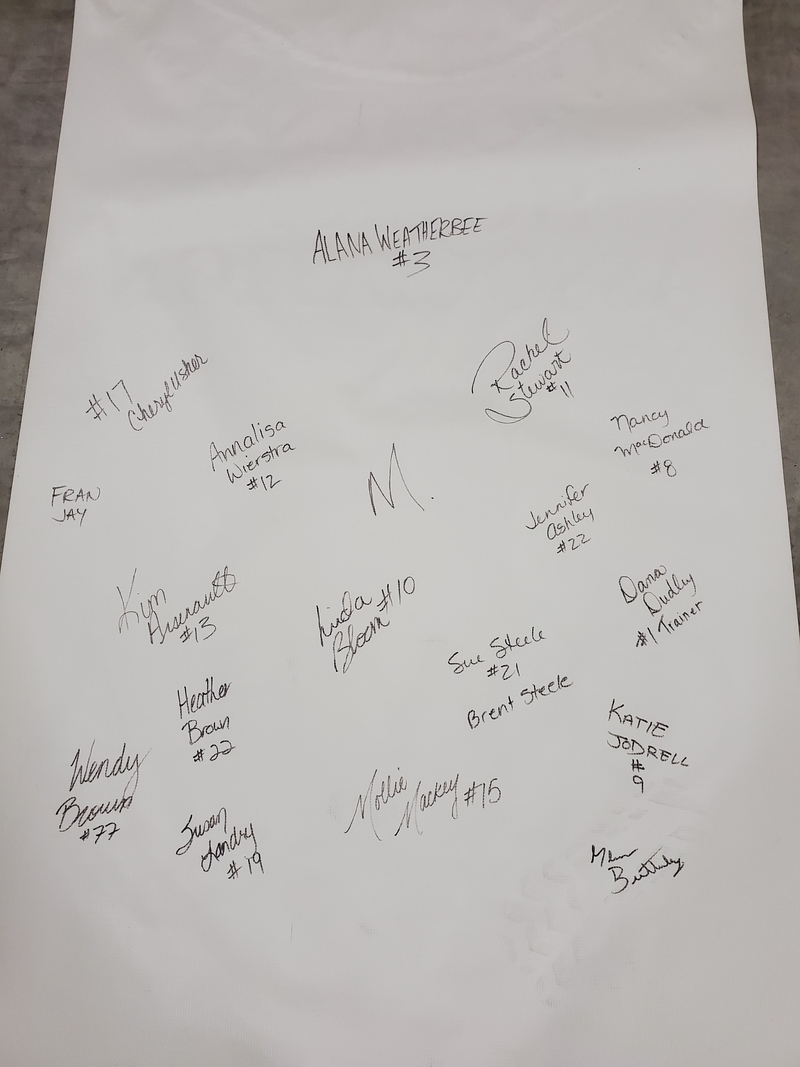 ALANA WEATHERBEE
#3
#17
Cheryl Usher
Rachel
Stewart
#11
Annalisa
Wierstra
#12
Nancy
MacDonald
#8
FRAN
JAY
M.
Jennifer
Ashley
#22
Kim
Arsenault
#13
Linda
Bloom #10
Dana
Dudley
#1 Trainer
Sue Steele
#21
Brent Steele
Heather
Brown
#22
KATIE
JODRELL
#
9
Wendy
Brown
#77
Mollie
Mackey #15
Susan
Landry
#19